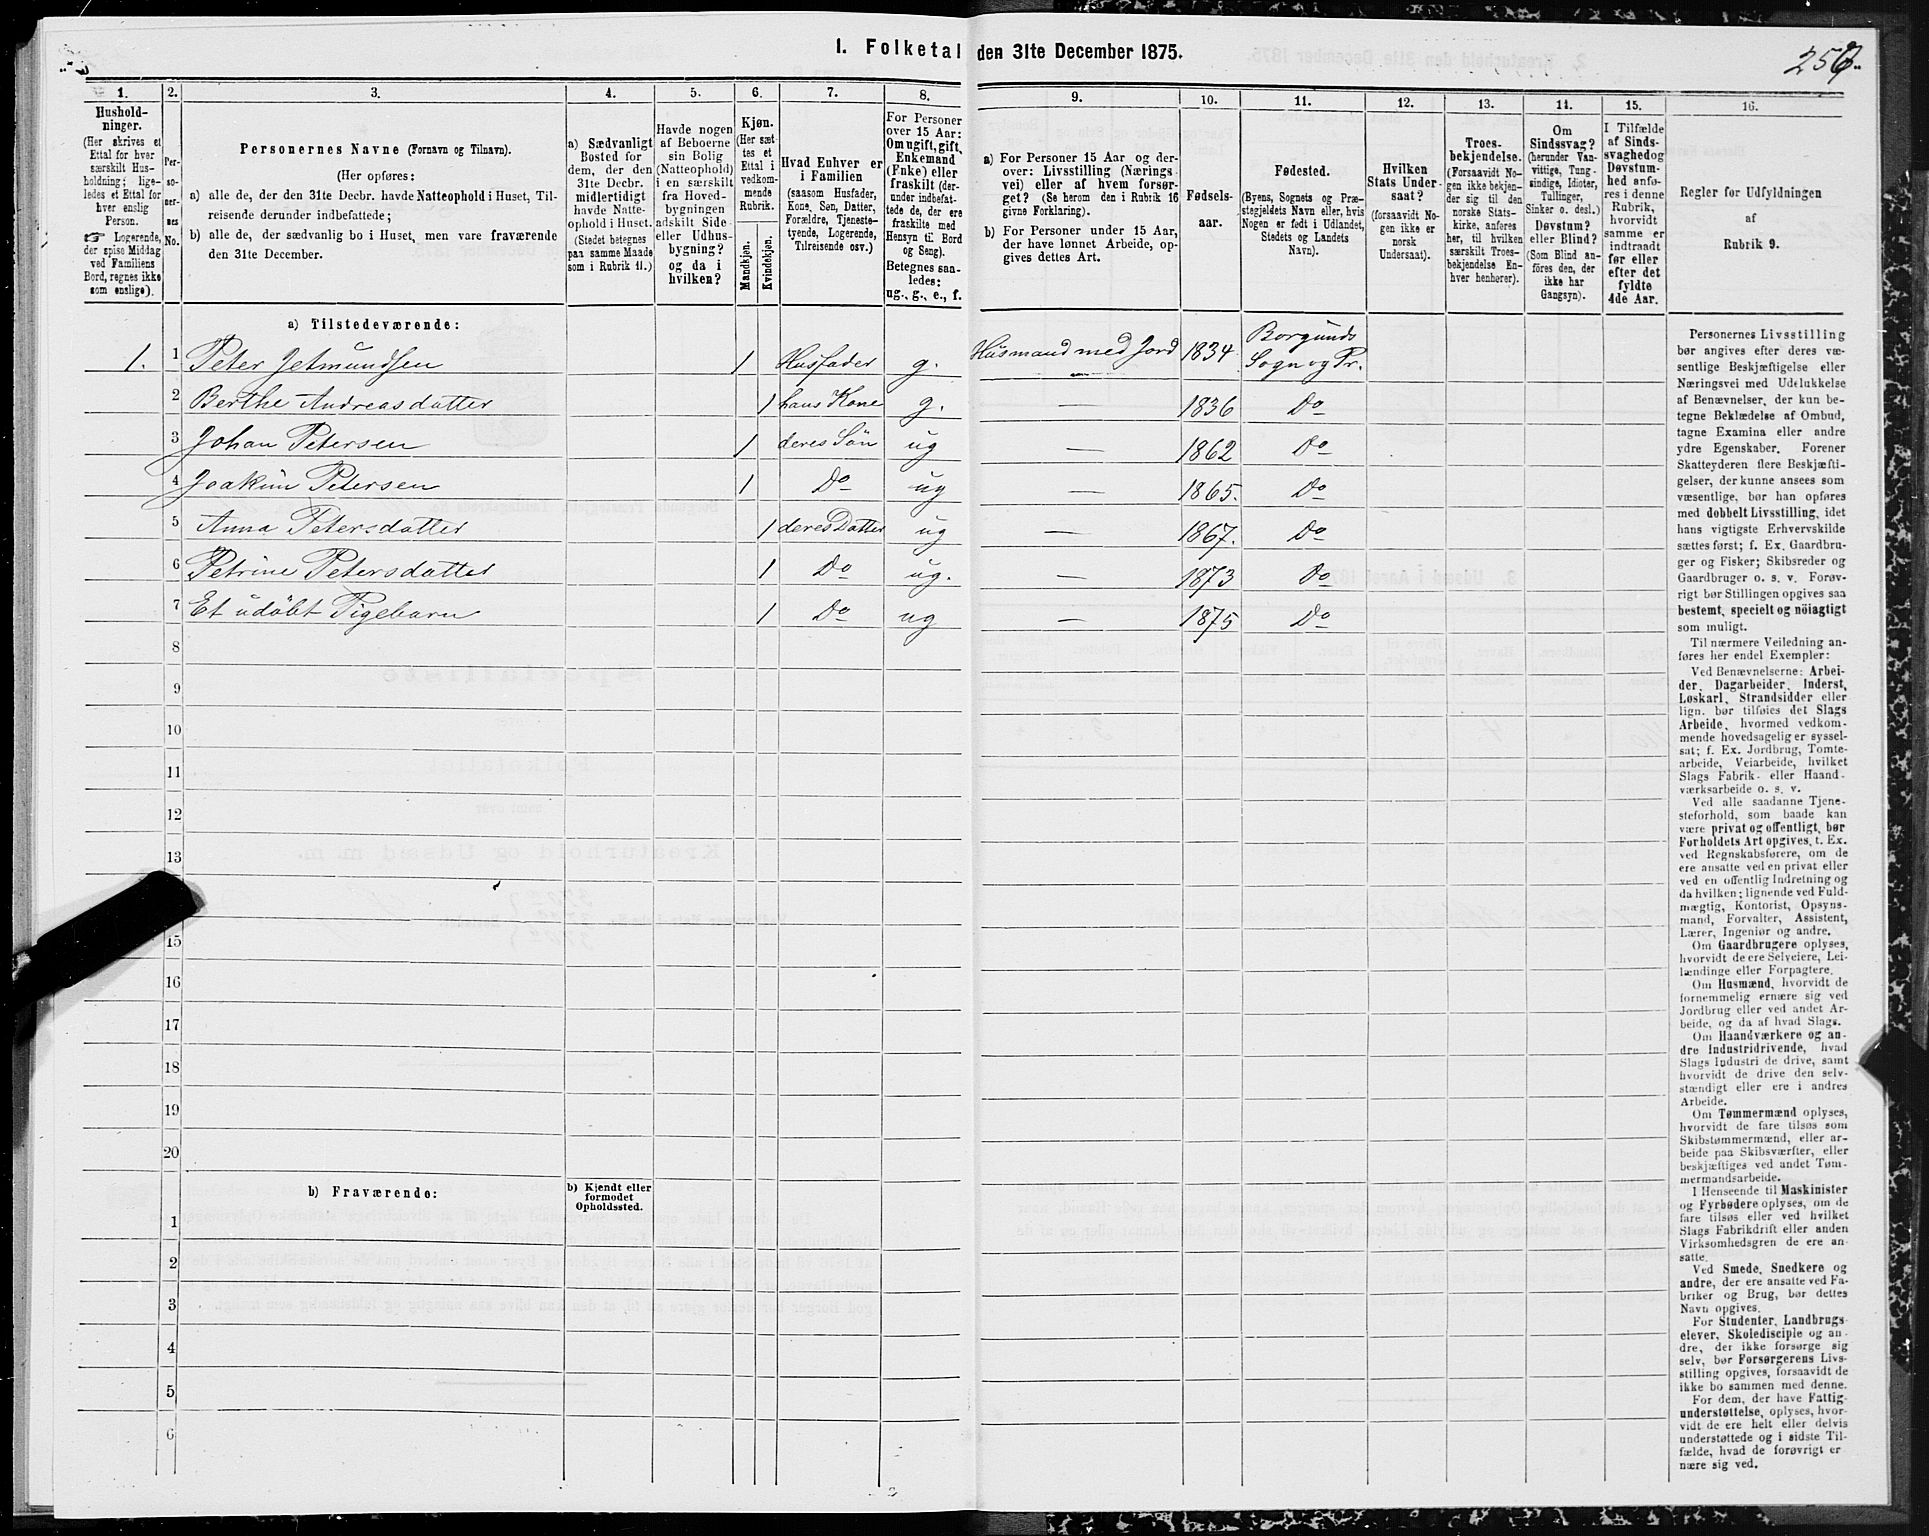 1. Folketal den 31te December 1875.
256.
1.
Hushold-
ninger.
(Her skrives et
Ettal for hver
særskilt Hus-
holdning; lige-
ledes et Ettal for
hver enslig
Person.
Logerende,
der spise Middag
ved Familiens
Bord, regnes ikke
som enslige).
2.
Per-
so-
ner-
nes
No.
3.
Personernes Navne (Fornavn og Tilnavn).
(Her opføres:
a) alle de, der den 31te Decbr. havde Natteophold i Huset, Til-
reisende derunder indbefattede;
b) alle de, der sædvanlig bo i Huset, men vare fraværende
den 31te December.
4.
a) Sædvanligt
Bosted for
dem, der den
31te Decbr.
midlertidigt
havde Natte-
ophold i Huset.
(Stedet betegnes
paa samme Maade
som i Rubrik 11.)
5.
Havde nogen
af Beboerne
sin Bolig
(Natteophold)
i en særskilt
fra Hoved-
bygningen
adskilt Side-
eller Udhus-
bygning?
og da i
hvilken?
6.
Kjøn.
(Her sæt-
tes et
Ettal i
vedkom-
mende
Rubrik.
Mandkjøn.
Kvindekjøn.
7.
Hvad Enhver er
i Familien
(saasom Husfader,
Kone, Søn, Datter,
Forældre, Tjeneste-
tyende, Logerende,
Tilreisende osv.)
8.
For Personer
over 15 Aar:
Om ugift, gift,
Enkemand
(Enke) eller
fraskilt (der-
under indbefat-
tede de, der ere
fraskilte med
Hensyn til Bord
og Seng).
Betegnes saa-
ledes:
ug., g., e., f.
9.
a) For Personer 15 Aar og der-
over: Livsstilling (Nærings-
vei) eller af hvem forsør-
get? (Se herom den i Rubrik 16
givne Forklaring).
b) For Personer under 15 Aar,
der have lønnet Arbeide, op-
gives dettes Art.
10.
Fødsels-
aar.
11.
Fødested.
(Byens, Sognets og Præ-
stegjeldets Navn eller, hvis
Nogen er født i Udlandet,
Stedets og Landets
Navn).
12.
Hvilken
Stats Under-
saat?
(forsaavidt No-
gen ikke er
norsk
Undersaat).
13.
Troes-
bekjendelse.
(Forsaavidt No-
gen ikke bekjen-
der sig til den
norske Stats-
kirke, anføres
her, til hvilken
særskilt Troes-
bekjendelse En-
hver henhører).
14.
Om
Sindssvag?
(herunder Van-
vittige, Tung-
sindige, Idioter,
Tullinger,
Sinker o. desl.)
Døvstum?
eller Blind?
(Som Blind an-
føres den, der
ikke har
Gangsyn).
15.
I Tilfælde
af Sinds-
svaghed og
Døvstum-
hed anfø-
res i denne
Rubrik,
hvorvidt
samme er
indtraadt
før eller
efter det
fyldte
4de Aar.
16.
Regler for Udfyldningen
af
Rubrik 9.
a) Tilstedeværende:
1. 1 Peter Jetmundsen 1 Husfader g. Husmand med Jord 1834 Borgunds Sogn og Pr.
2 Berthe Andreasdatter 1 hans Kone g. — 1836 Do
3 Johan Petersen 1 deres Søn ug — 1862 Do
4 Joakim Petersen 1 Do ug — 1865. Do
5 Anna Petersdatter 1 deres Datter ug — 1867. Do
6 Petrine Petersdatter 1 Do ug. — 1873 Do
7 Et udøbt Pigebarn 1 Do ug — 1875 Do
8
9
10
11
12
13
15
16
17
18
19
20
b) Fraværende:
b) Kjendt eller
formodet
Opholdssted.
1
2
3
4
5
6
Personernes Livsstilling
bør angives efter deres væ-
sentlige Beskjæftigelse eller
Næringsvei med Udelukkelse
af Benævnelser, der kun be-
tegne Beklædelse af Ombud,
tagne Examina eller andre
ydre Egenskaber. Forener
Skatteyderen flere Beskjæfti-
gelser, der kunne ansees som
væsentlige, bør han opføres
med dobbelt Livsstilling, idet
hans vigtigste Erhvervskilde
sættes først; f. Ex. Gaardbru-
ger og Fisker; Skibsreder og
Gaardbruger o. s. v. Forøv-
rigt bør Stillingen opgives saa
bestemt, specielt og nöiagtigt
som muligt.
Til nærmere Veiledning an-
føres her endel Exempler:
Ved Benævnelserne: Arbei-
der, Dagarbeider, Inderst,
Løskarl, Strandsidder eller
lign. bør tilføies det Slags
Arbeide, hvormed vedkom-
mende hovedsagelig er syssel-
sat; f. Ex. Jordbrug, Tomte-
arbeide, Veiarbeide, hvilket
Slags Fabrik- eller Haand-
værksarbeide o. s. v.
Ved alle saadanne Tjene-
steforhold, som baade kan
være privat og offentligt, bør
Forholdets Art opgives, t. Ex.
ved Regnskabsførere, om de
ere ansatte ved en privat eller
ved en offentlig Indretning og
da hvilken; lignende ved Fuld-
mægtig, Kontorist, Opsyns-
mand, Forvalter, Assistent,
Lærer, Ingeniør og andre.
Om Gaardbrugere oplyses,
hvorvidt de ere Selveiere, Lei-
lændinge eller Forpagtere.
Om Husmænd, hvorvidt de
fornemmelig ernære sig ved
Jordbrug eller ved andet Ar-
beide, og da af hvad Slags.
Om Haandværkere og an-
dre Industridrivende, hvad
Slags Industri de drive, samt
hvorvidt de drive den selv-
stændigt eller ere i andres
Arbeide.
Om Tømmermænd oplyses,
hvorvidt de fare tilsøs som
Skibstømmermænd, eller ar-
beide paa Skibsværfter, eller
beskjæftiges ved andet Tøm-
mermandsarbeide.
I Henseende til Maskinister
og Fyrbødere oplyses, om de
fare tilsøs eller ved hvilket
Slags Fabrikdrift eller anden
Virksomhedsgren de ere an-
satte.
Ved Smede, Snedkere og
andre, der ere ansatte ved Fa-
briker og Brug, bør dettes
Navn opgives.
For Studenter, Landbrugs-
elever, Skoledisciple og an-
dre, der ikke forsørge sig
selv, bør Forsørgerens Livs-
stilling opgives, forsaavidt de
ikke bo sammen med denne.
For dem, der have Fattig-
understøttelse, oplyses, hvor-
vidt de ere helt eller delvis
understøttede og i sidste Til-
fælde, hvad de forøvrigt er
nære sig ved.